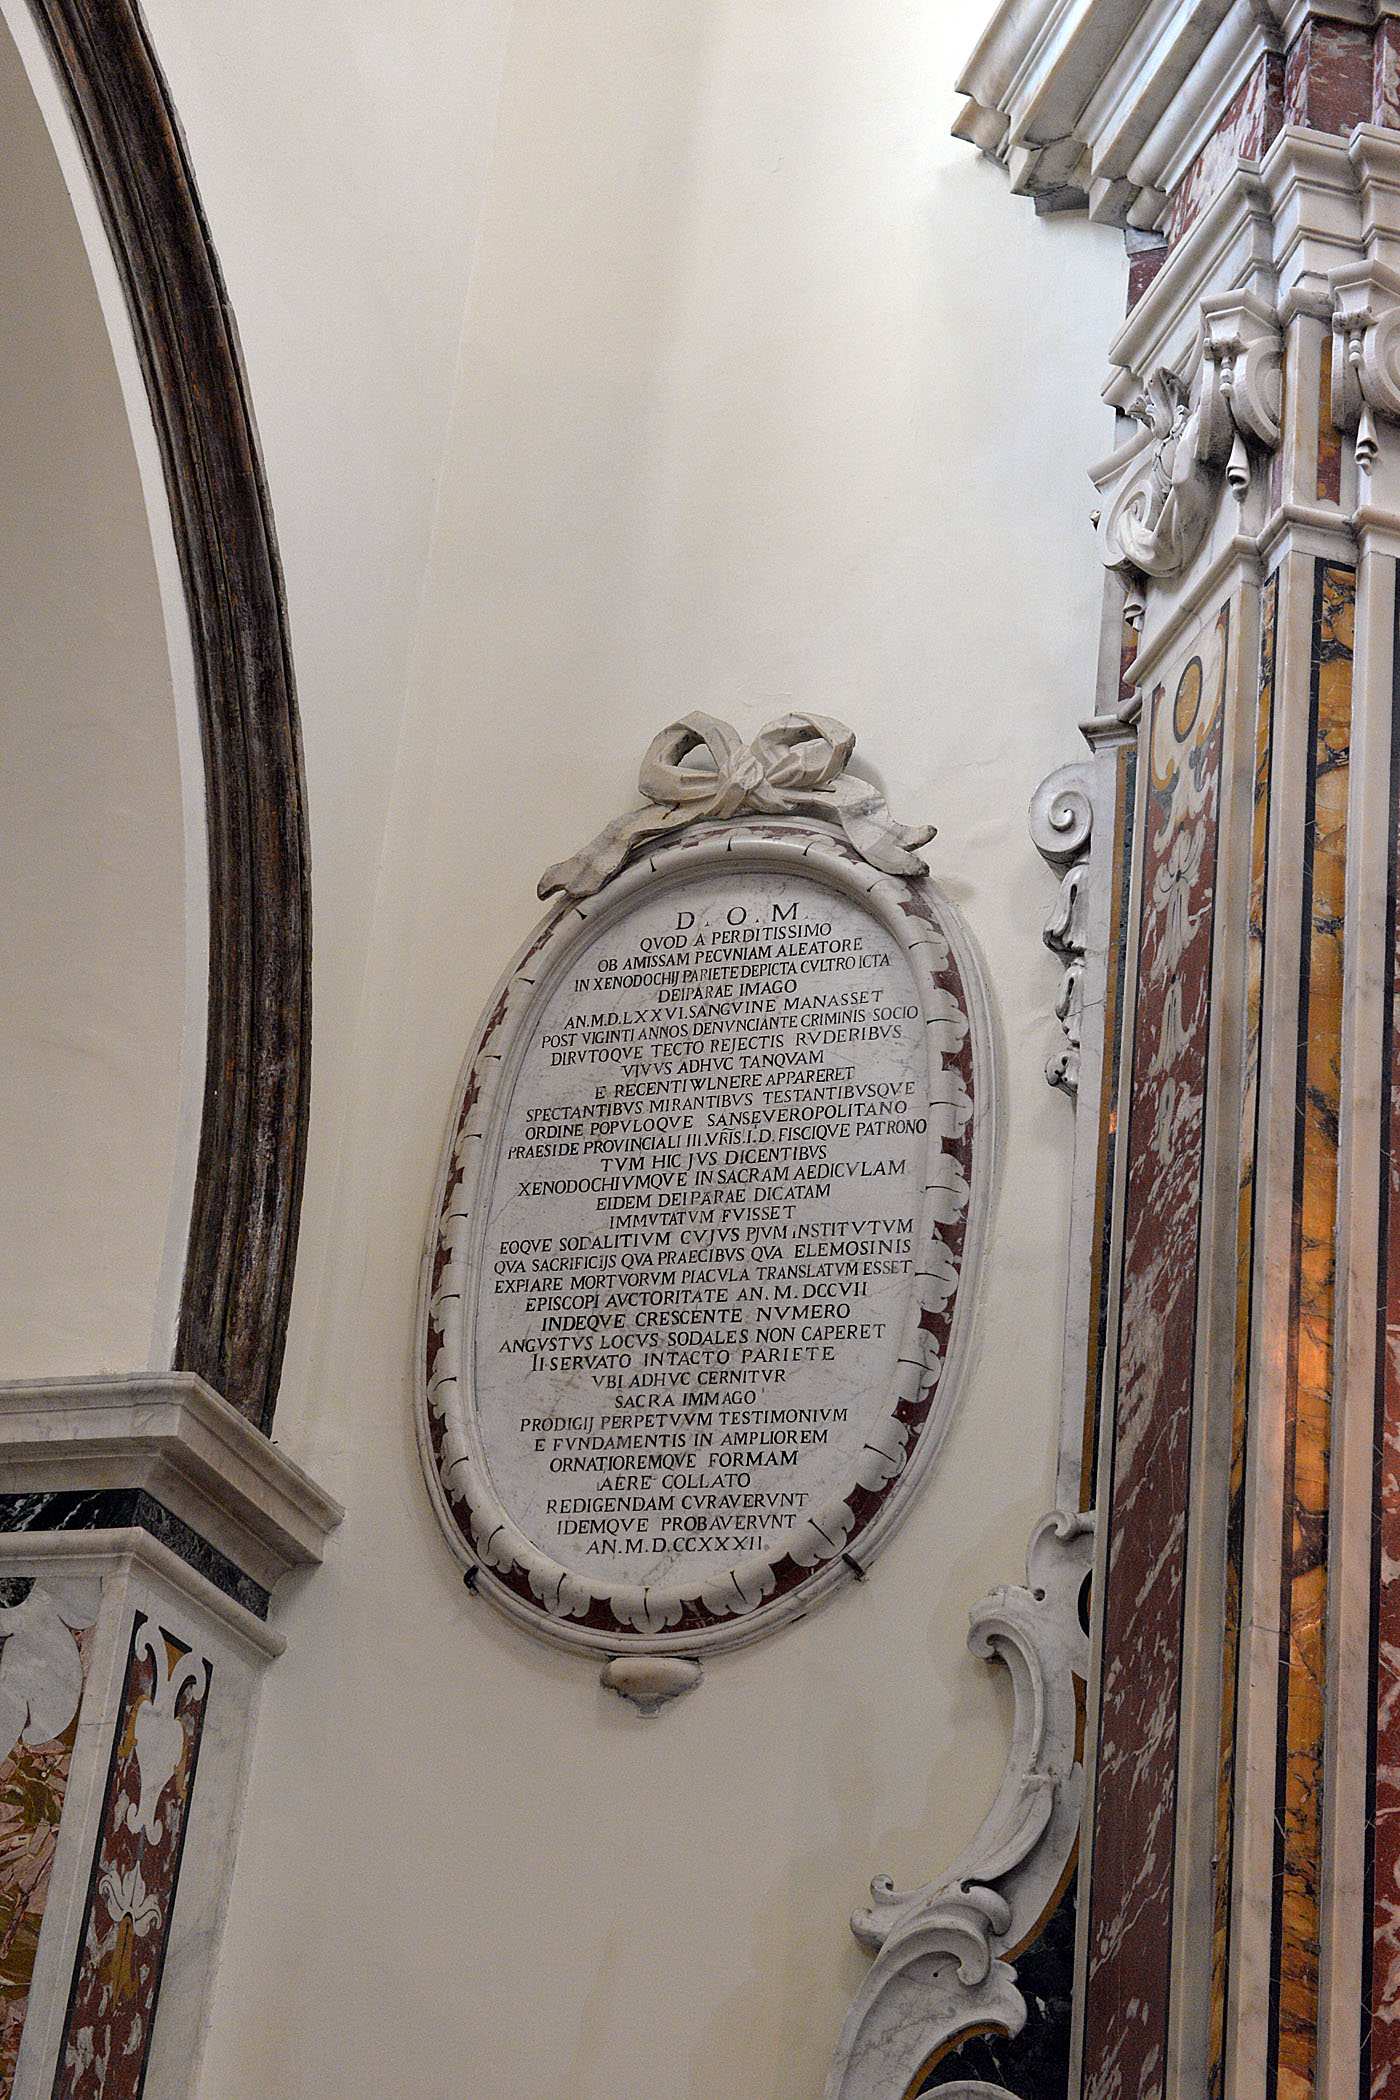 D. O. M.
QVOD A PERDITISSIMO
OB AMISSAM PECVNIAM ALEATORE
IN XENODOCHIJ PARIETE DEPICTA CVLTRO ICTA
DEIPARAE IMAGO
AN.M.D.LXXVI.SANGVINE MANASSET
POST VIGINTI ANNOS DENVNCIANTE CRIMINIS SOCIO
DIRVTOQVE TECTO REJECTIS RVDERIBVS
VIVVS ADHVC TANQVAM
E RECENTI WLNERE APPARERET
SPECTANTIBVS MIRANTIBVS TESTANTIBVSQVE
ORDINE POPVLOQVE SANSEVEROPOLITANO
PRAESIDE PROVINCIALI III.VRIS.I.D.FISCIQVE PATRONO
TVM HIC JVS DICENTIBVS
XENODOCHIVMQVE IN SACRAM AEDICVLAM
EIDEM DEIPARAE DICATAM
IMMVTATVM FVISSET
EOQVE SODALITIVM CVJVS PJVM INSTITVTVM
QVA SACRIFICIJS QVA PRAECIBVS QVA ELEMOSINIS
EXPIARE MORTVORVM PIACVLA TRANSLATVM ESSET
EPISCOPI AVCTORITATE AN. M. DCCVII
INDEQVE CRESCENTE NVMERO
ANGVSTVS LOCVS SODALES NON CAPERET
II SERVATO INTACTO PARIETE
VBI ADHVC CERNITVR
SACRA IMMAGO
PRODIGIJ PERPETVVM TESTIMONIVM
E FVNDAMENTIS IN AMPLIOREM
ORNATIOREMQVE FORMAM
AERE COLLATO
REDIGENDAM CVRAVERVNT
IDEMQVE PROBAVERVNT
AN.M.D.CCXXXII